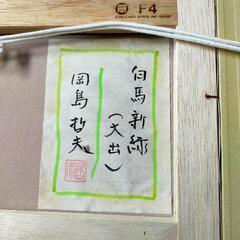 F4
白馬新緑
(大出)
岡島哲夫